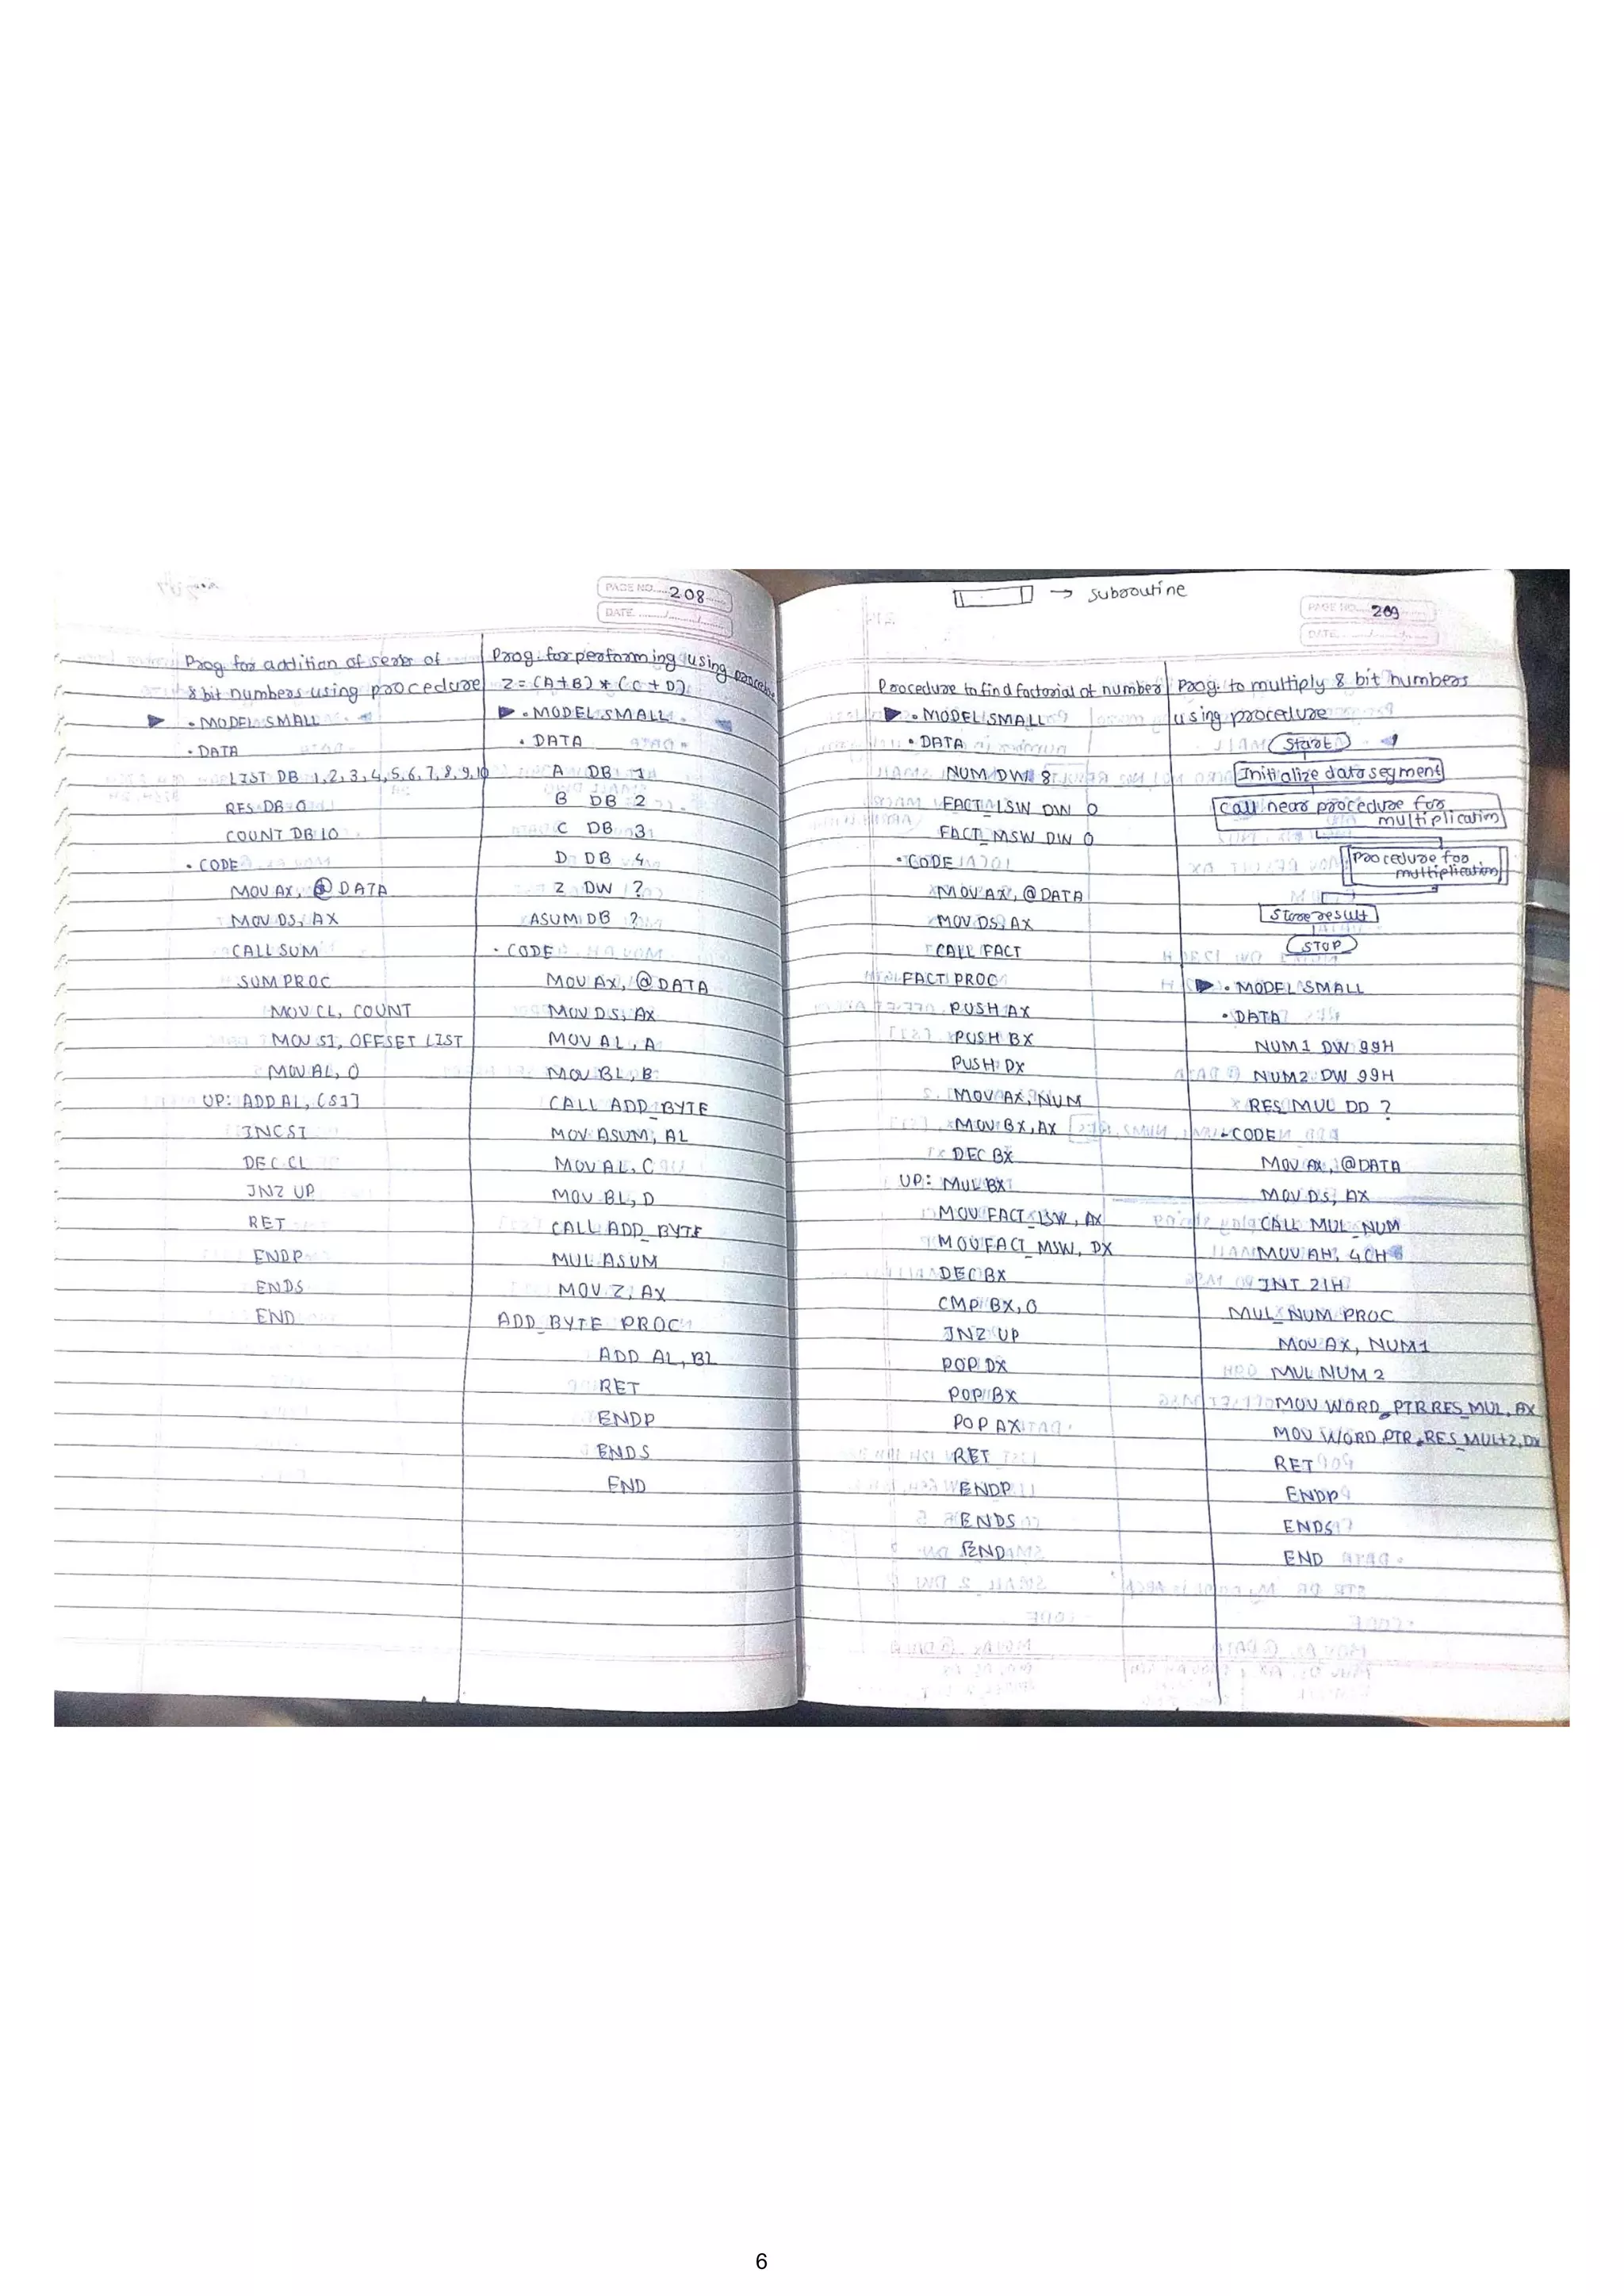 PAGE NO. 208
DATE
Prog. for addition of series of
8 bit numbers using procedure
.MODEL SMALL
.DATA
LIST DB 1,2,3,4,5,6,7,8,9,10
RES DB 0
COUNT DB 10
.CODE
MOV AX, @DATA
MOV DS, AX
CALL SUM
SUM PROC
MOV CL, COUNT
MOV SI, OFFSET LIST
MOV AL, 0
UP: ADD AL, [SI]
INC SI
DEC CL
JNZ UP
RET
ENDP
ENDS
END
Prog. for performing using procedure
Z = (A+B) * (C+D)
.MODEL SMALL
.DATA
A DB 1
B DB 2
C DB 3
D DB 4
Z DW ?
ASUM DB ?
.CODE
MOV AX, @DATA
MOV DS, AX
MOV AL, A
MOV BL, B
CALL ADD_BYTE
MOV ASUM, AL
MOV AL, C
MOV BL, D
CALL ADD_BYTE
MUL ASUM
MOV Z, AX
ADD_BYTE PROC
ADD AL, BL
RET
ENDP
ENDS
END
→ Subroutine
PAGE NO. 209
DATE
Procedure to find factorial of number
.MODEL SMALL
.DATA
NUM DW 8
FACT_LSW DW 0
FACT_MSW DW 0
.CODE
MOV AX, @DATA
MOV DS, AX
CALL FACT
FACT PROC
PUSH AX
PUSH BX
PUSH DX
MOV AX, NUM
MOV BX, AX
DEC BX
UP: MUL BX
MOV FACT_LSW, AX
MOV FACT_MSW, DX
DEC BX
CMP BX, 0
JNZ UP
POP DX
POP BX
POP AX
RET
ENDP
ENDS
END
Prog. to multiply 8 bit numbers
using procedure
Start
Initialize data segment
Call near procedure for
multiplication
Procedure for
multiplication
Store result
STOP
.MODEL SMALL
.DATA
NUM1 DW 99H
NUM2 DW 99H
RES_MUL DD ?
.CODE
MOV AX, @DATA
MOV DS, AX
CALL MUL_NUM
MOV AH, 4CH
INT 21H
MUL_NUM PROC
MOV AX, NUM1
MUL NUM2
MOV WORD PTR RES_MUL, AX
MOV WORD PTR RES_MUL+2, DX
RET
ENDP
ENDS
END
6